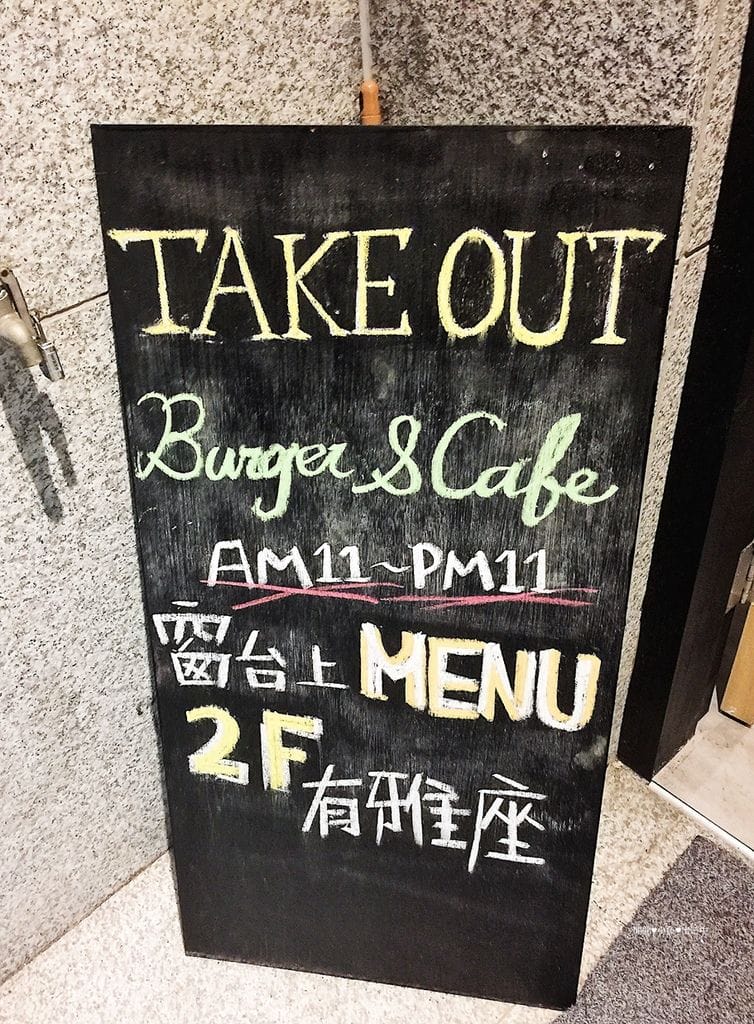 TAKE OUT
Burger & Cafe
AM11~PM11
窗台上 MENU
2F
有雅座